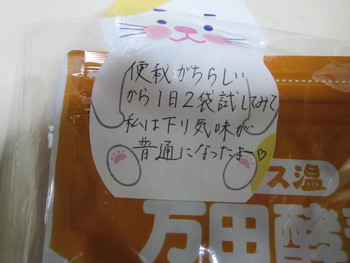 便秘がちらしい
から1日2袋試してみて
私は下り気味が
普通になったよ♡
ス温
万田酵